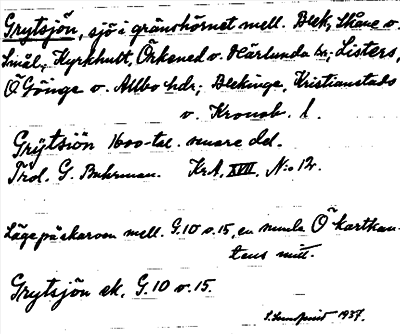 Grytsjön, sjö i gränshörnet mell. Blek, Skåne o.
Smål.; Kyrkhult, Örkened o. Härlunda sn; Listers,
Ö Göinge o. Allbo hdr; Blekinge, Kristianstads
o. Kronob. l.
Grÿtsiön 1600-tal. snare dd.
Trol. G. Buhrman. KrA. XVII, No 12.
Läge på skarven mell. G.10 o. 15, en smula Ö kartkan-
tens mitt.
Grytsjön ek. G.10 o. 15.
1937.